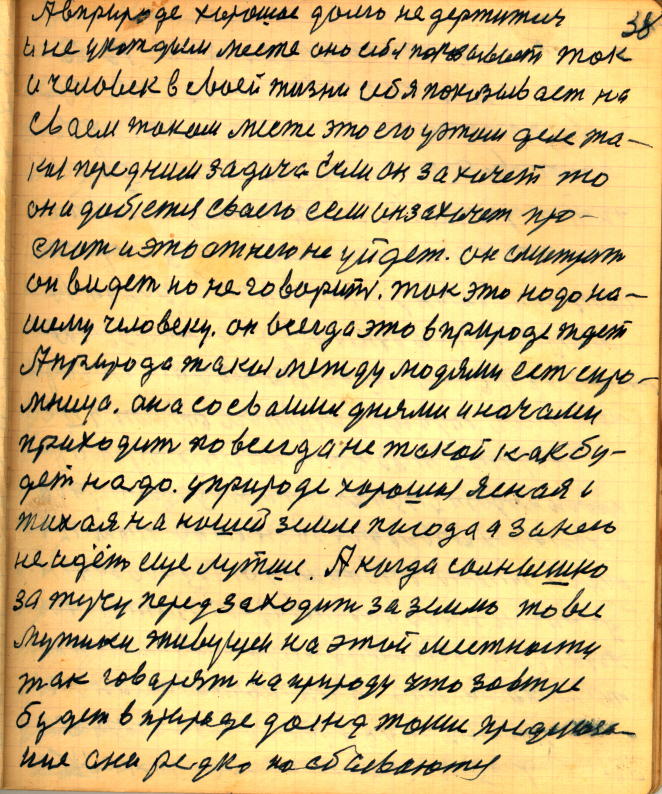 38
А в природе хорошое долго не держится
и не у каждым месте оно себя показывает так
и человек в своей жизни себя показывает на
сваем таком месте это его у этом деле та-
кая передним задача Если он захочет то
он и добётся своего если он захочет про-
спат и это от него не уйдет. он смотрит
он видет но не говорить. так это надо на-
шему человеку. он всегда это в природе ждет
А природа такая между людями ест скро-
мница. она со сваими днями и начами
приходит по всегда не такой как бу-
дет надо. у природе хорошая ясная и
тихая на нашей земле погода а за нею
не идёт еще лутше. А когда солнышко
за тучу перед заходит за землю то все
мужики живущеи на этой местносту
так говарят на природу что завтре
будет в природе дожд такие предсказа-
ние они редко но сбиваются